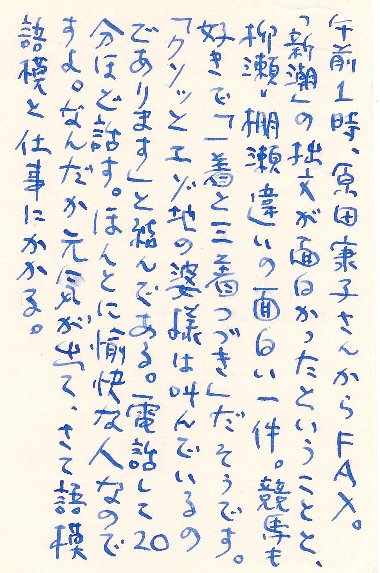 午前1時、原田康子さんからFAX。
「新潮」の拙文が面白かったということと、
柳瀬=棚瀬違いの面白い一件。競馬も
好きで「一着と三着つづき」だそうです。
「クソッとエゾ地の婆様は叫んでいるの
であります」と結んである。電話して20
分ほど話す。ほんとに愉快な人なので
すよ。なんだか元気が出て、さて語模
語模と仕事にかかる。